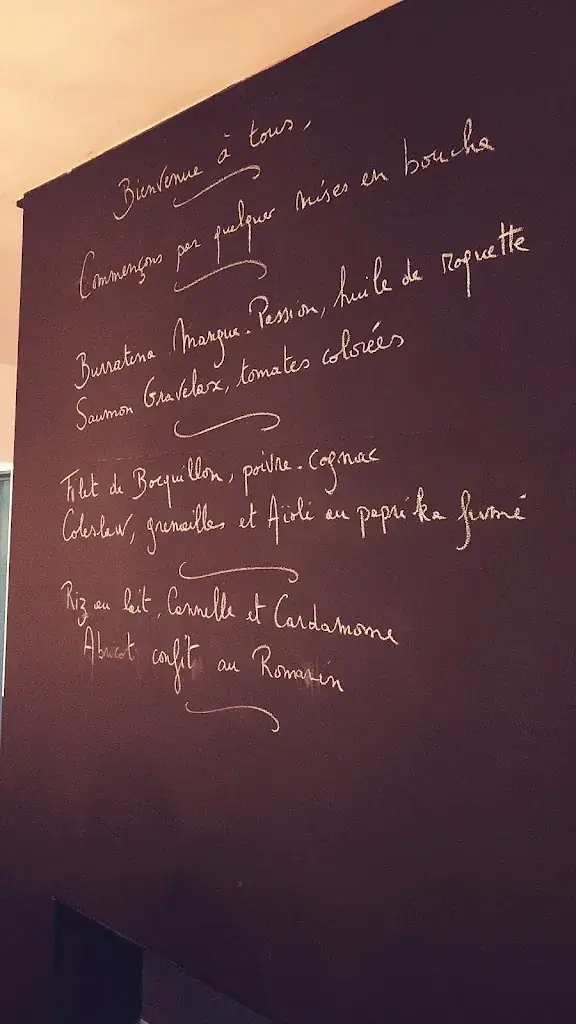 Bienvenue à tous,
Commençons par quelques mises en bouche
Burratina, Mangue-Passion, huile de roquette
Saumon Gravelax, tomates colorées
Filet de Bocquillon, poivre-cognac
Coleslaw, grenailles et Aïoli au paprika fumé
Riz au lait, Cannelle et Cardamome
Abricot confit au Romarin